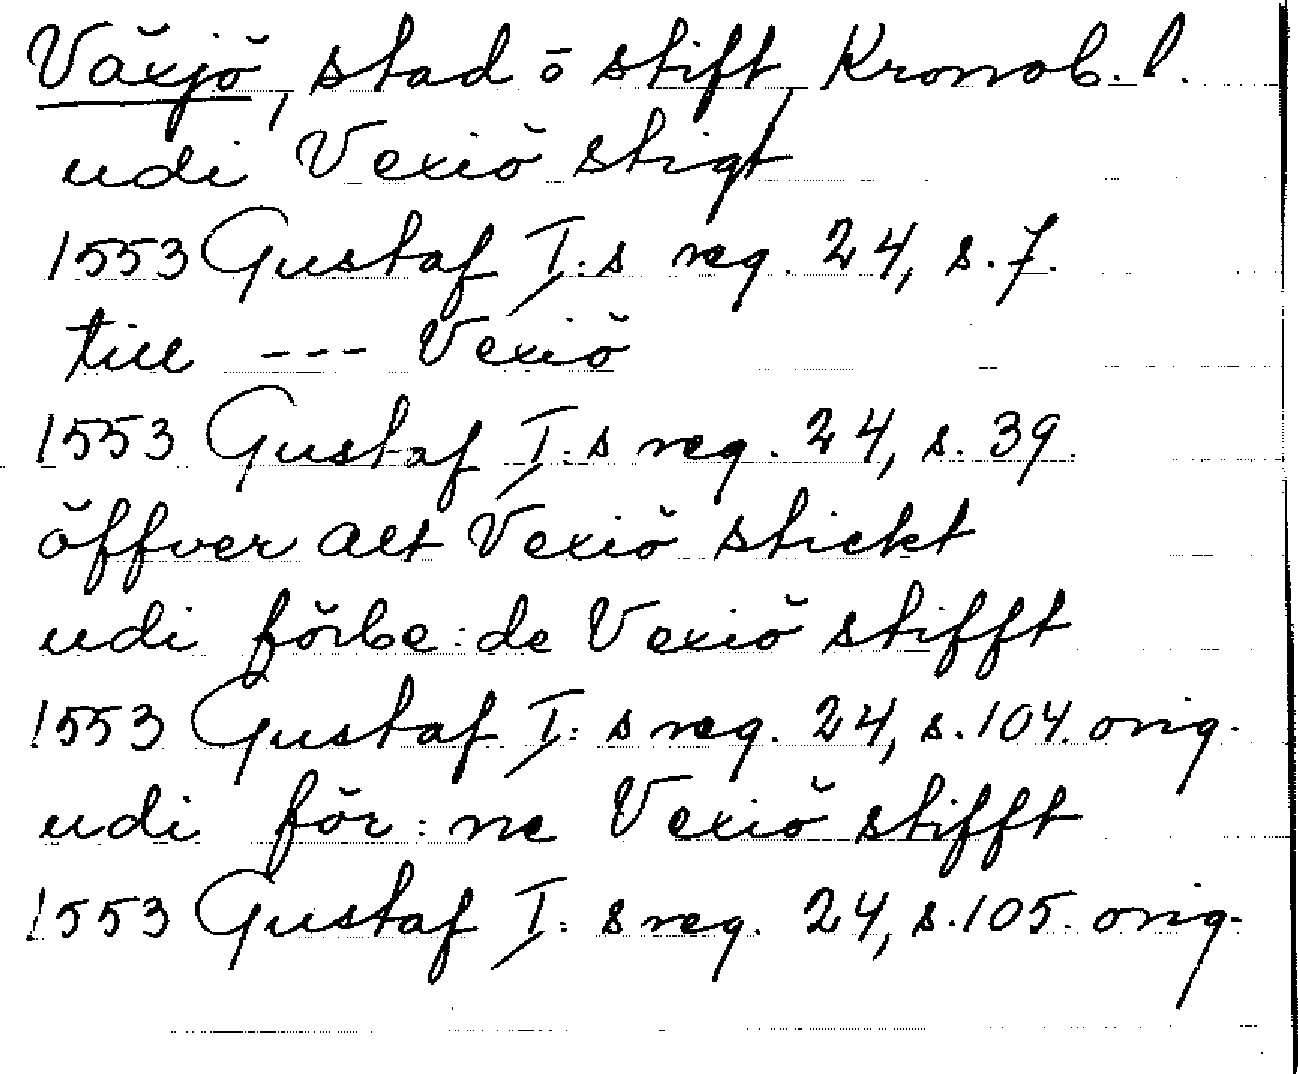 Växjö, stad o stift, Kronob. l.
udi Vexiö stigt
1553 Gustaf I:s reg. 24, s. 7.
till --- Vexiö
1553 Gustaf I:s reg. 24, s. 39.
öffver alt Vexiö stickt
udi förbe:de Vexiö stifft
1553 Gustaf I:s reg. 24, s. 104. orig.
udi för:ne Vexiö stifft
1553 Gustaf I:s reg. 24, s. 105. orig.